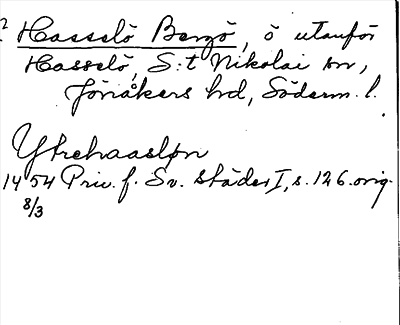 ? Hasselö Bergö, ö utanför
Hasselö, S:t Nikolai sn,
Jönåkers hd, Söderm. l.
Ytrehaasløn
1454 Priv. f. Sv. städer I, s. 126. orig.
8/3